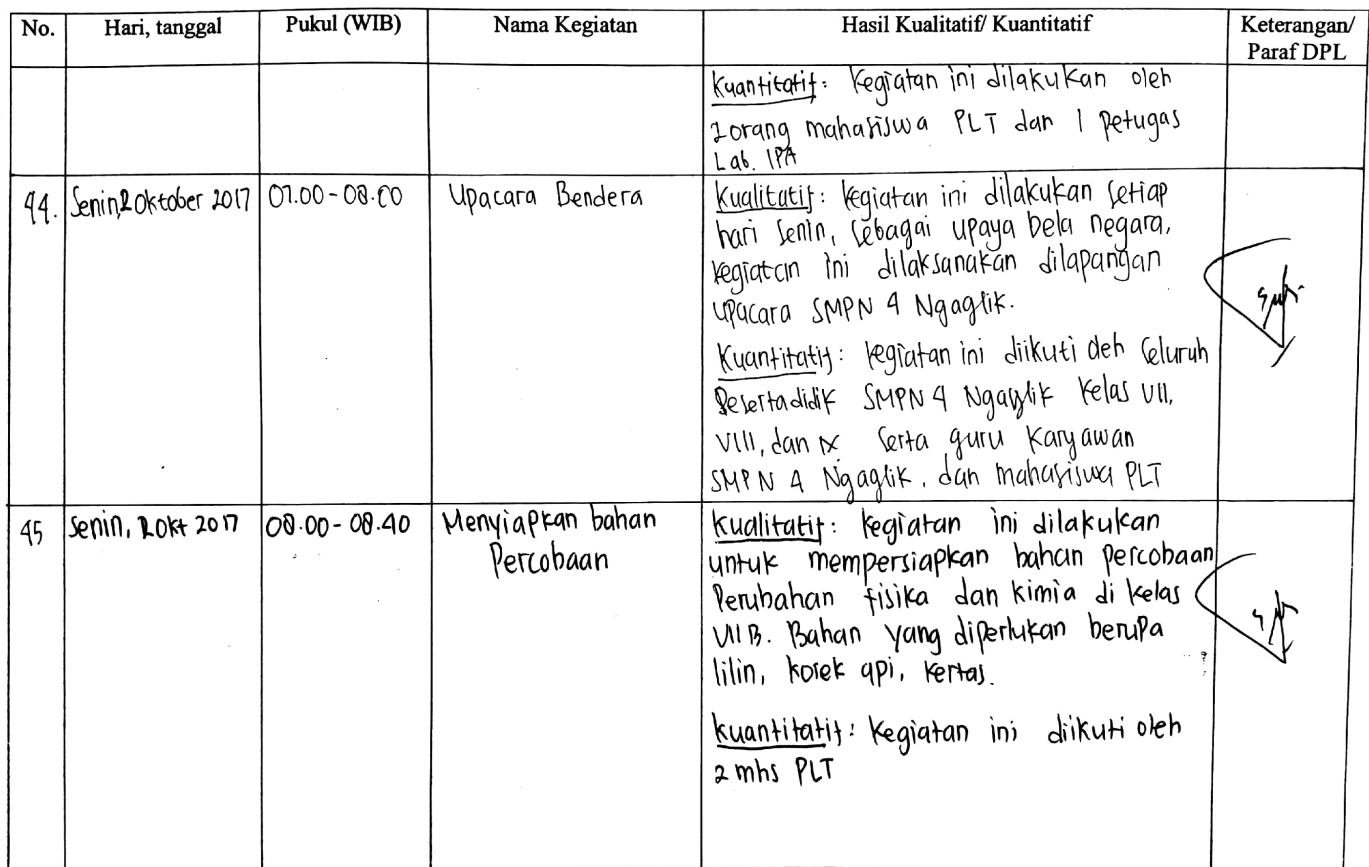 No. Hari, tanggal Pukul (WIB) Nama Kegiatan Hasil Kualitatif/ Kuantitatif Keterangan/
Paraf DPL
Kuantitatif: Kegiatan ini dilakukan oleh
2 orang mahasiswa PLT dan 1 petugas
Lab. IPA
44. Senin, 2 Oktober 2017 07.00 - 08.00 Upacara Bendera Kualitatif: kegiatan ini dilakukan setiap
hari Senin, sebagai upaya bela negara,
kegiatan ini dilaksanakan dilapangan
upacara SMPN 4 Ngaglik.
Kuantitatif: kegiatan ini diikuti oleh seluruh
Peserta didik SMPN 4 Ngaglik kelas VII,
VIII, dan IX serta guru karyawan
SMPN 4 Ngaglik, dan mahasiswa PLT
45 Senin, 2 Okt 2017 08.00 - 08.40 Menyiapkan bahan Kualitatif: kegiatan ini dilakukan
Percobaan untuk mempersiapkan bahan percobaan
Perubahan fisika dan kimia di kelas
VII B. Bahan yang diperlukan berupa
lilin, korek api, kertas.
kuantitatif: Kegiatan ini diikuti oleh
2 mhs PLT